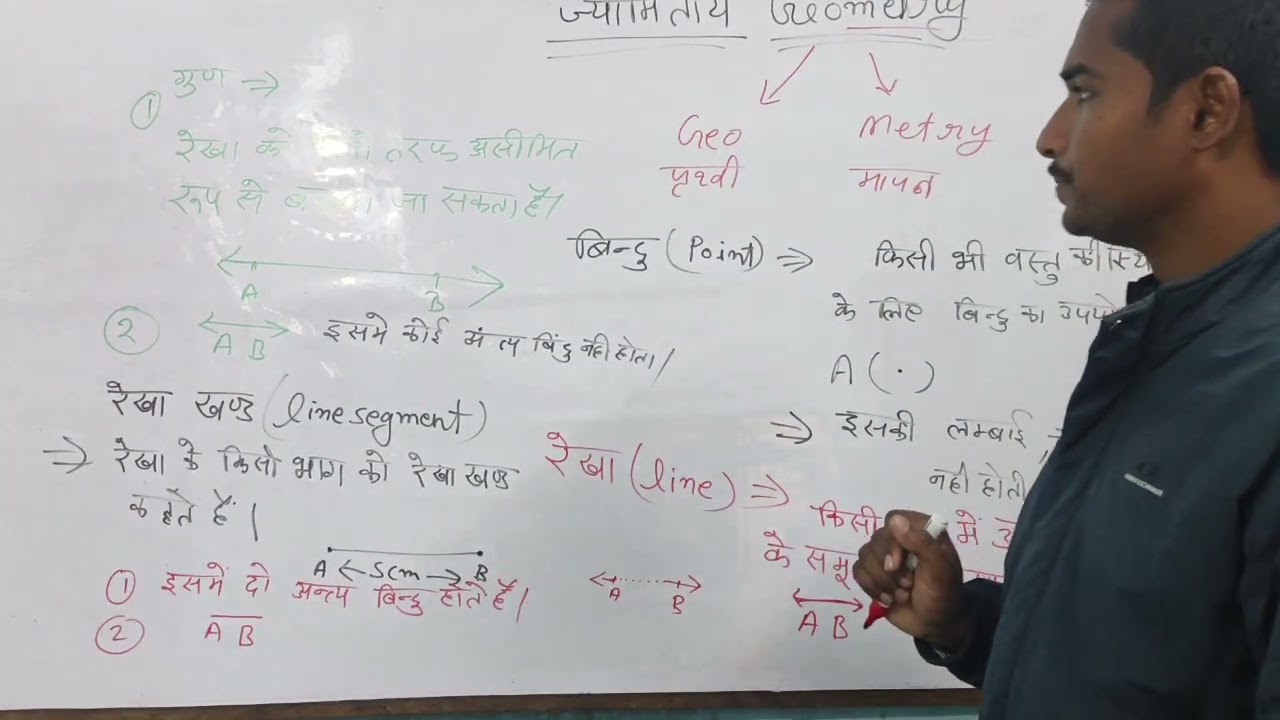 ज्यामितीय Geometry
Geo Metry
पृथ्वी मापन
गुण ⇒
① रेखा को तरफ असीमित
रूप से जा सकता है।
A B
② A B इसमे कोई अंत्य बिंदु नही होता।
रेखा खण्ड (line segment)
⇒ रेखा के किसी भाग को रेखा खण्ड
कहते हैं।
A ← 5cm → B
① इसमें दो अन्त्य बिन्दु होते हैं।
② A B
बिन्दु (Point) ⇒ किसी भी वस्तु की
के लिए बिन्दु का
A (·)
⇒ इसकी लम्बाई,
नही होती
रेखा (line) ⇒ किसी में
के
A B
A B